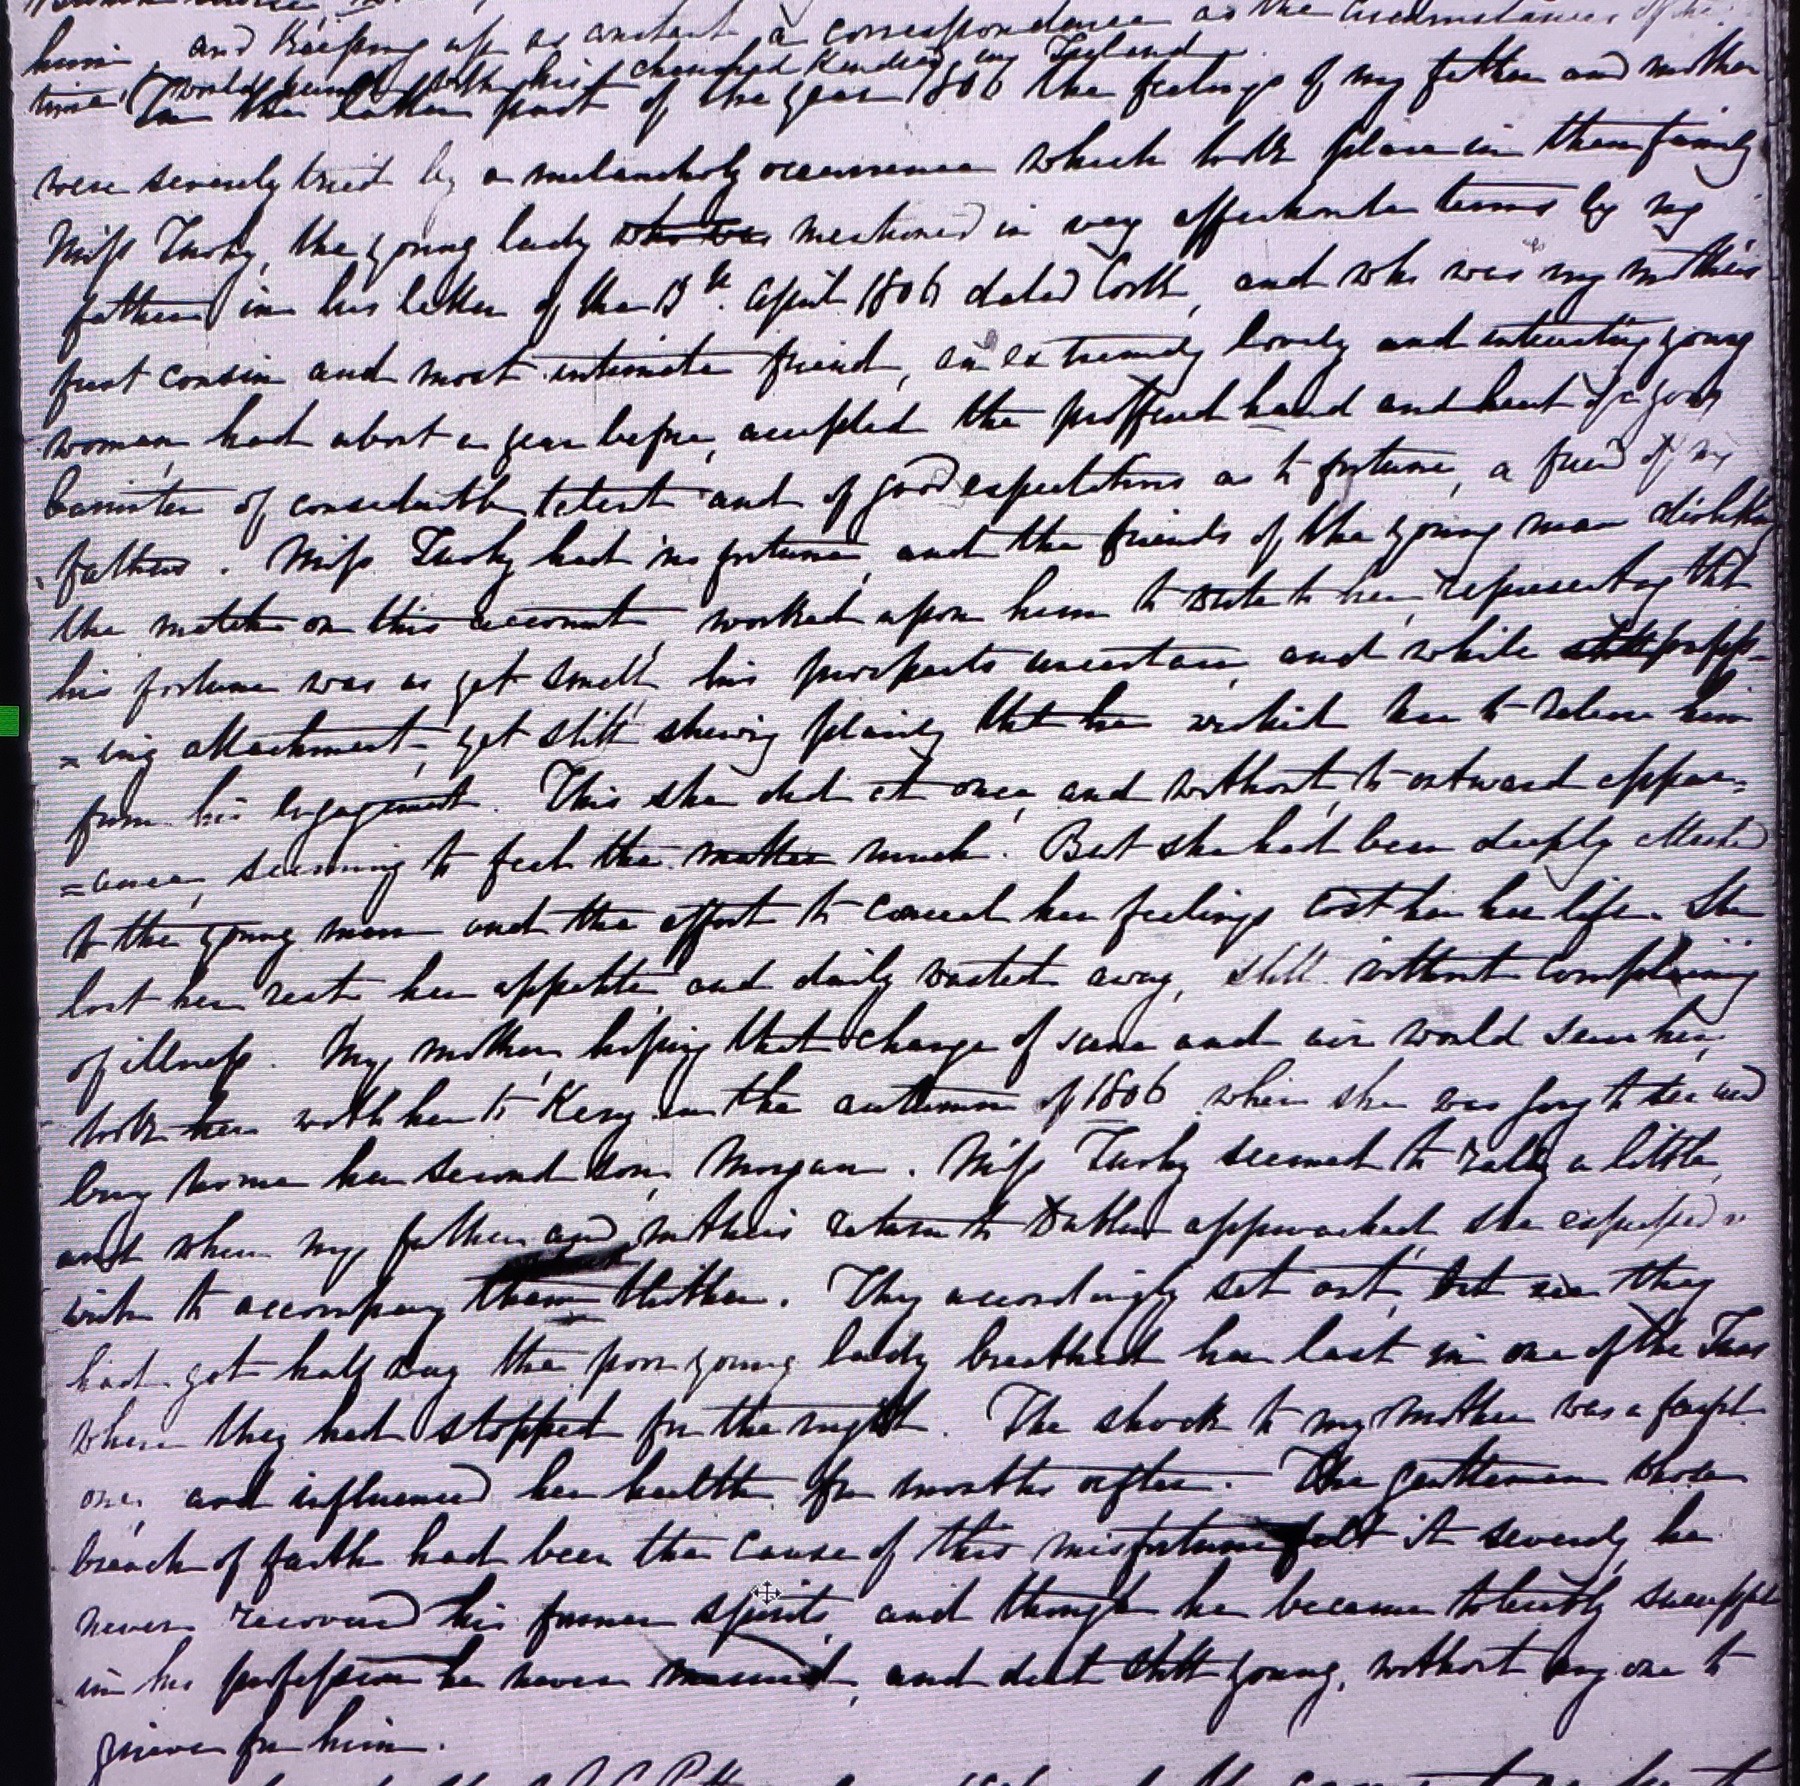 him, and keeping up as constant a correspondence as the circumstances of the
time, would permit with his cherished kindred in Ireland.
In the latter part of the year 1806 the feelings of my father and mother
were severely tried by a melancholy occurrence which took place in their family
Miss Tuohy, the young lady who was mentioned in very affectionate terms by my
father in his letter of the 13th. April 1806 dated Cork, and who was my mother's
first cousin and most intimate friend, an extremely lovely and interesting young
woman, had about a year before, accepted the proffered hand and heart of a young
barrister of considerable talent and of good expectations as to fortune, a friend of my
father's. Miss Tuohy had no fortune, and the friends of the young man disliking
the match on this account, worked upon him to write to her, representing that
his fortune was as yet small, his prospects uncertain, and while still profess-
=ing attachment, yet still shewing plainly that he wished her to release him
from his engagement. This she did at once, and without, to outward appear=
=ance, seeming to feel the matter much. But she had been deeply attached
to the young man and the effort to conceal her feelings cost her her life. She
lost her rest, her appetite, and daily wasted away, still without complaining
of illness. My mother, hoping that change of scene and air would serve her,
took her with her to Kerry in the autumn of 1806 when she was going to see and
bring home her second son, Morgan. Miss Tuohy seemed to rally a little,
and when my father and mother's return to Dublin approached, she expressed a
wish to accompany them thither. They accordingly set out, but ere they
had got half way the poor young lady breathed her last in one of the Inns
where they had stopped for the night. The shock to my mother was a fearful
one, and influenced her health for months after. The gentleman whose
breach of faith had been the cause of this misfortune felt it severely, he
never recovered his former spirits, and though he became tolerably successful
in his profession he never married, and died still young, without any one to
grieve for him.